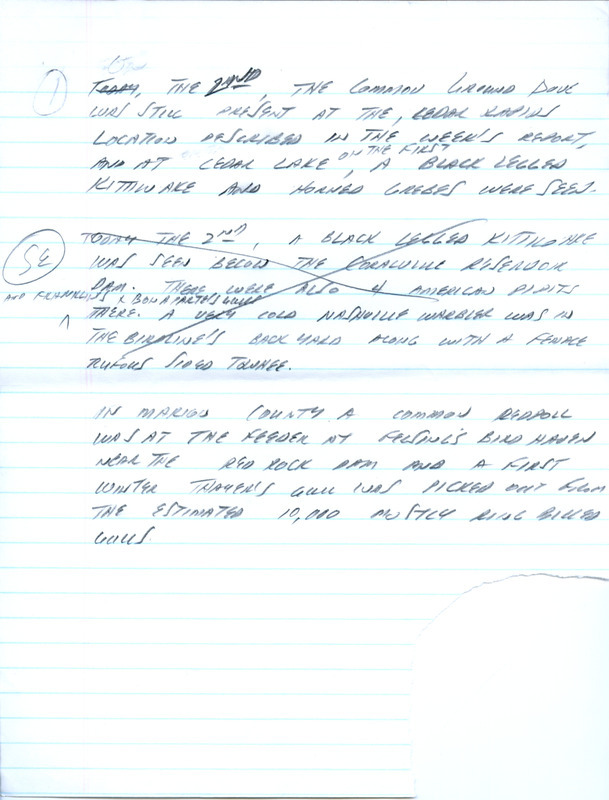 1 TODAY, THE 2ND, THE COMMON GROUND DOVE
WAS STILL PRESENT AT THE, CEDAR RAPIDS
LOCATION DESCRIBED IN THE WEEK'S REPORT,
ON THE FIRST
AND AT CEDAR LAKE, A BLACK LEGGED
KITTIWAKE AND HORNED GREBES WERE SEEN.
SE TODAY THE 2ND, A BLACK LEGGED KITTIWAKE
WAS SEEN BELOW THE CORALVILLE RESERVOIR
DAM. THERE WERE ALSO 4 AMERICAN PIPITS
AND FRANKLIN'S & BONAPARTE'S GULLS
THERE. A VERY COLD NASHVILLE WARBLER WAS IN
THE BIRDLINE'S BACK YARD ALONG WITH A FEMALE
RUFOUS SIDED TOWHEE.
IN MARION COUNTY A COMMON REDPOLL
WAS AT THE FEEDER AT BIRD HAVEN
NEAR THE RED ROCK DAM AND A FIRST
WINTER THAYER'S GULL WAS PICKED OUT FROM
THE ESTIMATED 10,000 MOSTLY RING BILLED
GULLS.